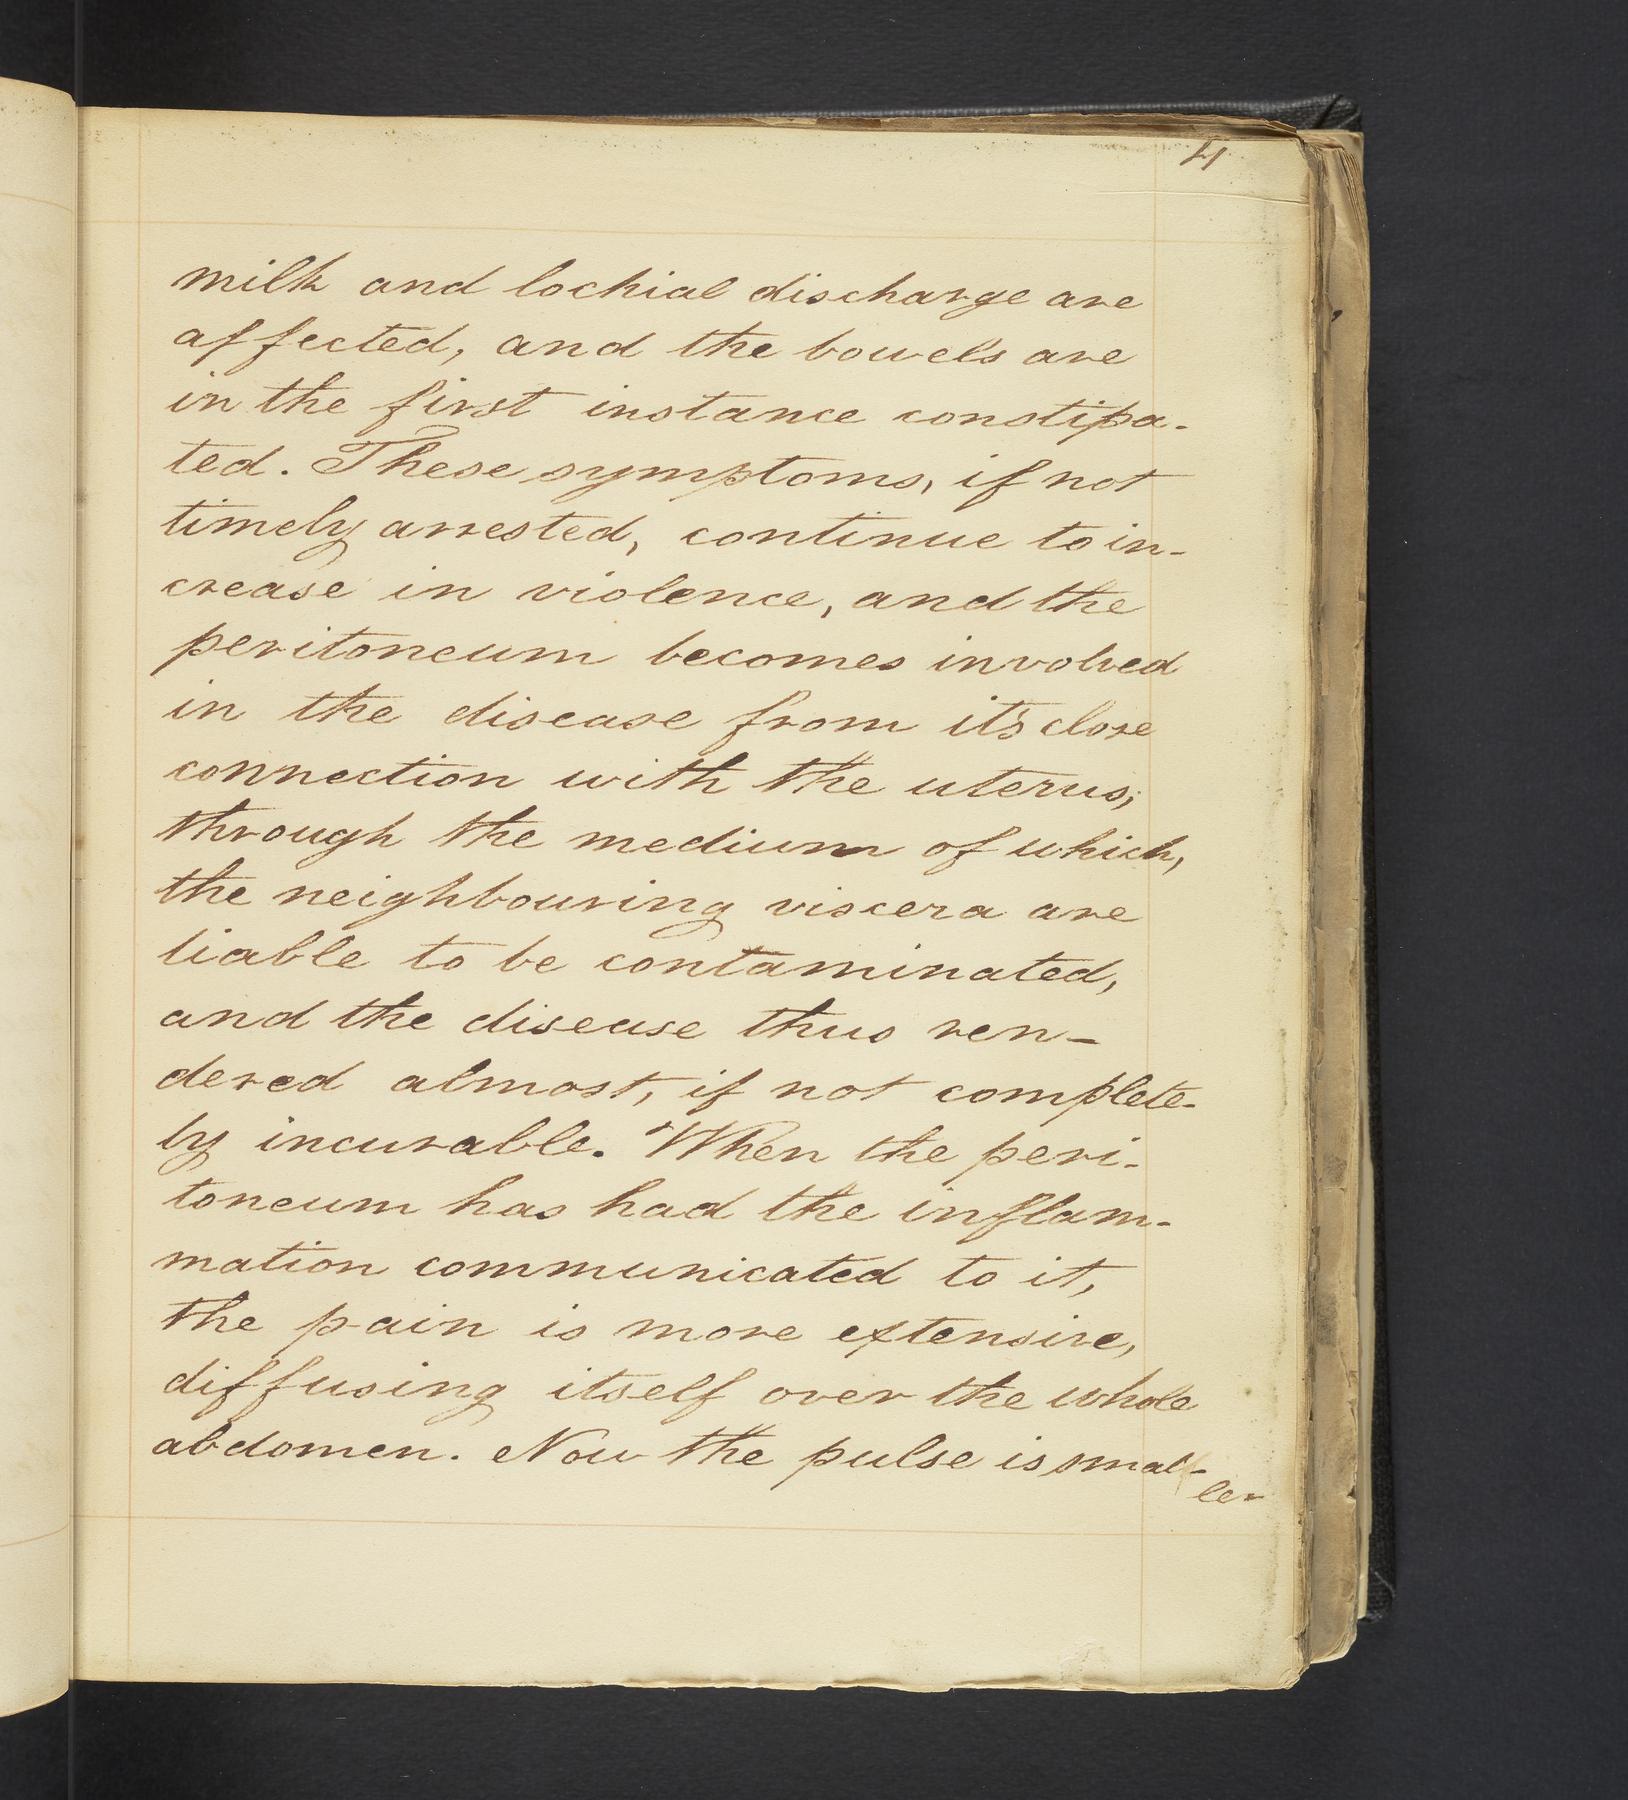 4
milk and lochial discharge are
affected, and the bowels are
in the first instance constipa-
ted. These symptoms, if not
timely arrested, continue to in-
crease in violence, and the
peritoneum becomes involved
in the disease from it's close
connection with the uterus;
through the medium of which,
the neighbouring viscera are
liable to be contaminated,
and the disease thus ren-
dered almost, if not complete-
ly incurable. When the peri-
toneum has had the inflam-
mation communicated to it,
the pain is more extensive,
diffusing itself over the whole
abdomen. Now the pulse is smal-
ler